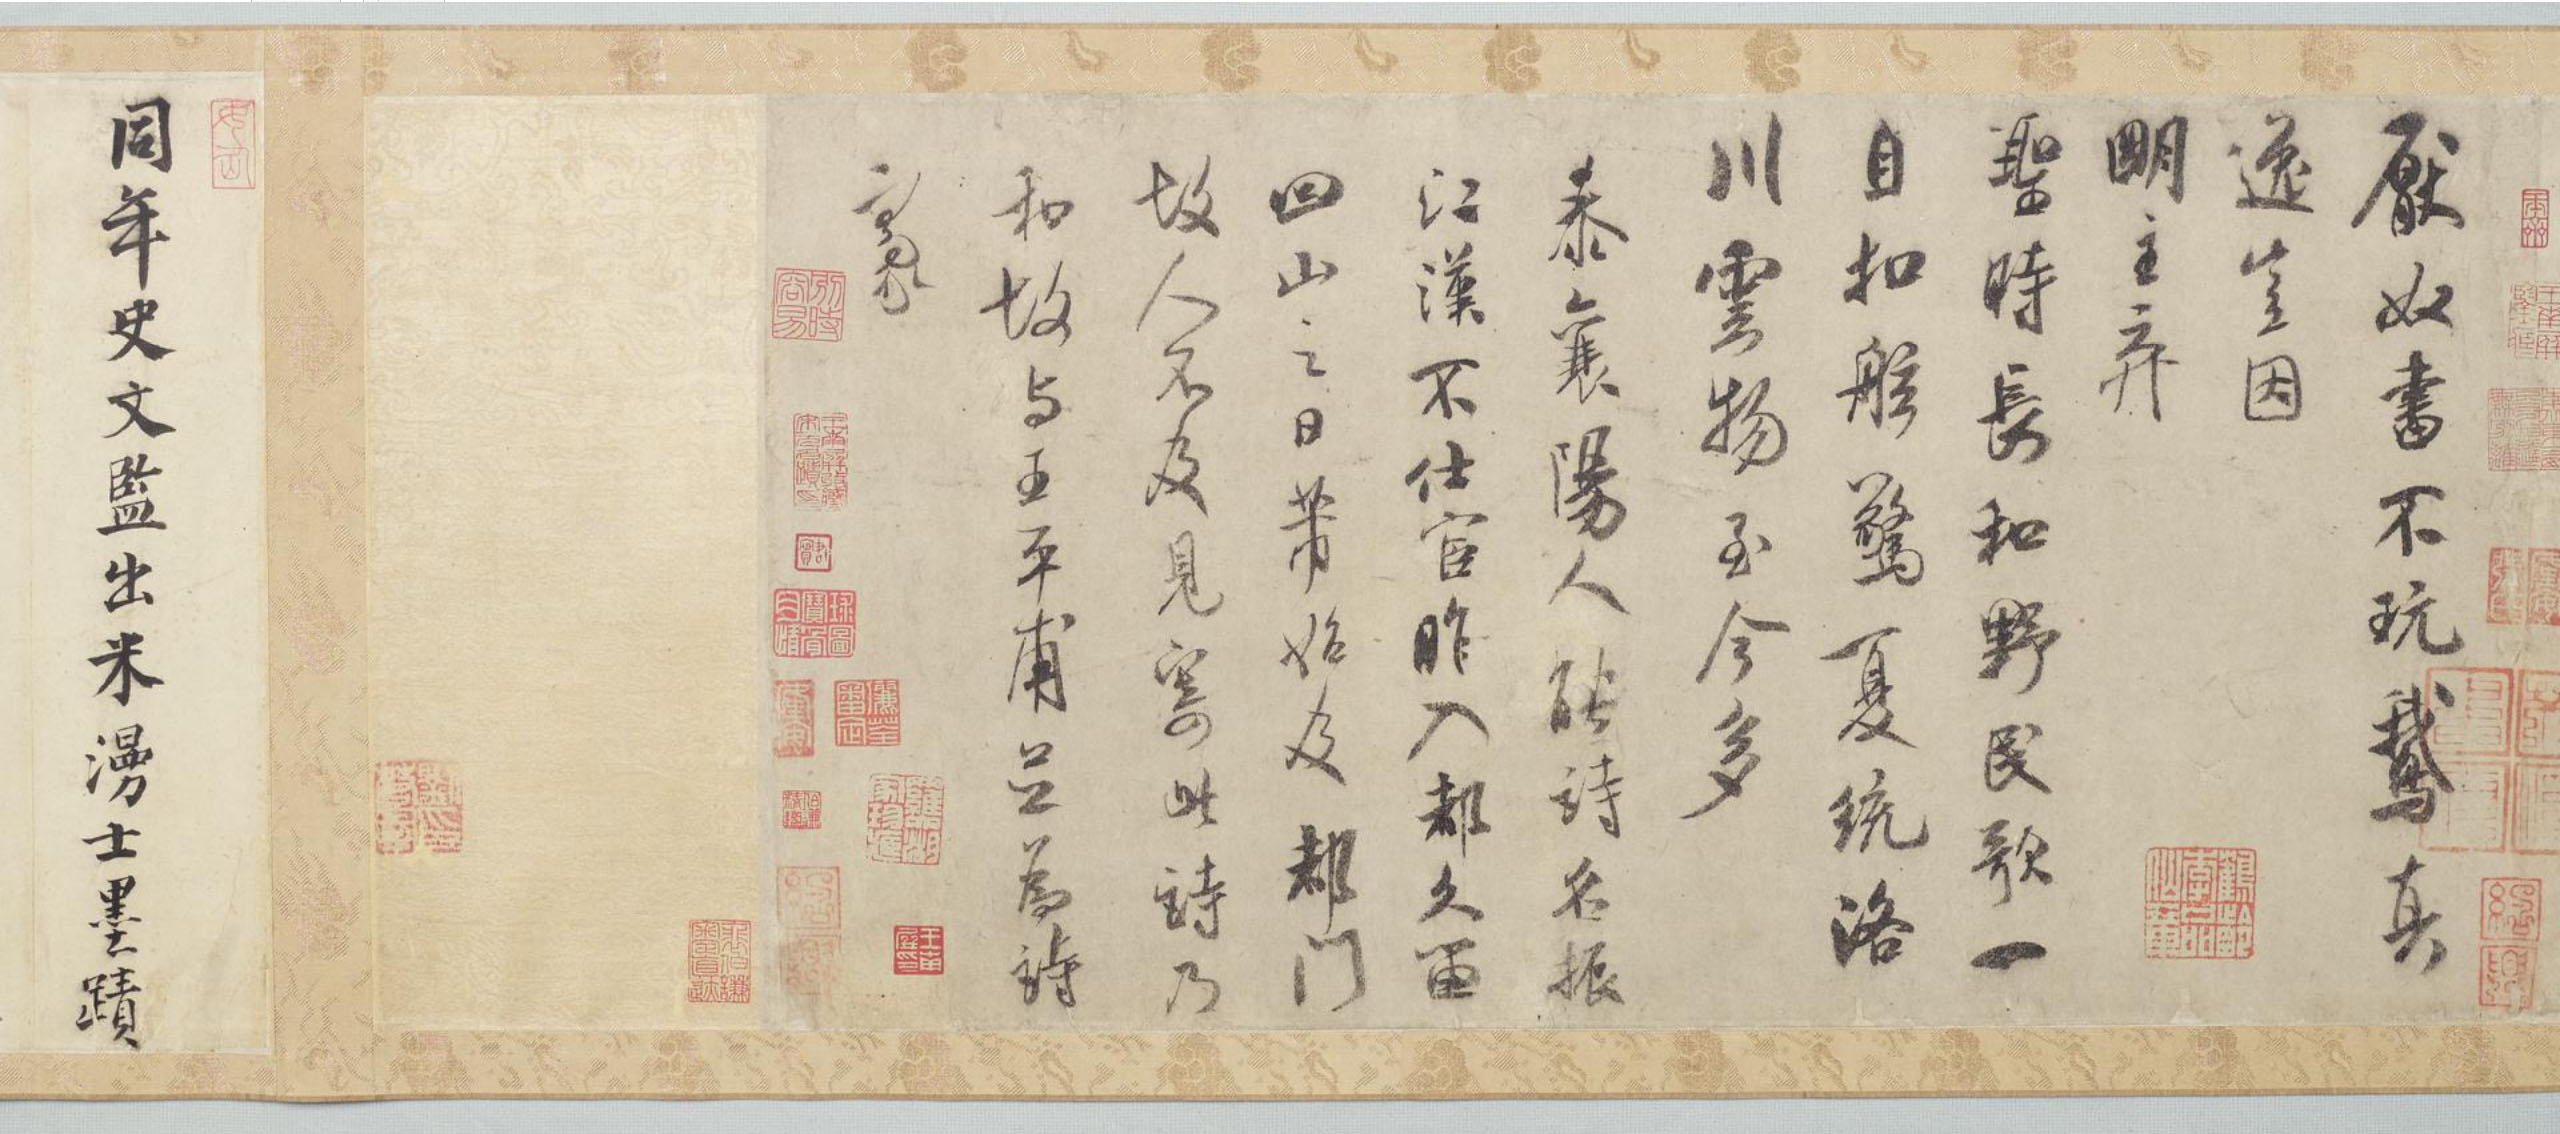 厭奴書不玩鵝真
逸豈因
明主弃
聖時長和野民歌一
自扣舷驚夏統洛
川雲物至今多
泰襄陽人能詩名振
江漢不仕宦昨入都久留
回山之日芾始及都門
故人不及見寄此詩乃
和故与王平甫並為詩
豪
同年史文監出米漫士墨蹟